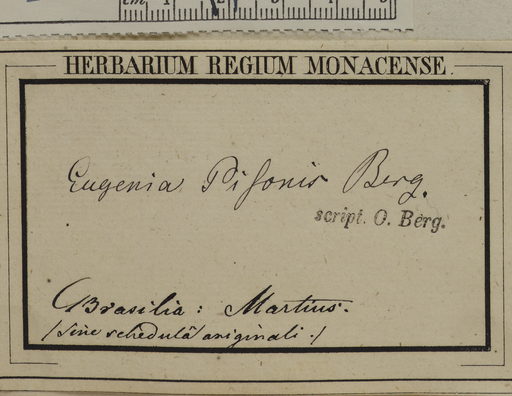 cm 1 2 3 4 5
HERBARIUM REGIUM MONACENSE
Eugenia Pisonis Berg.
script. O. Berg.
Brasilia: Martius.
/sine schedulâ originali./